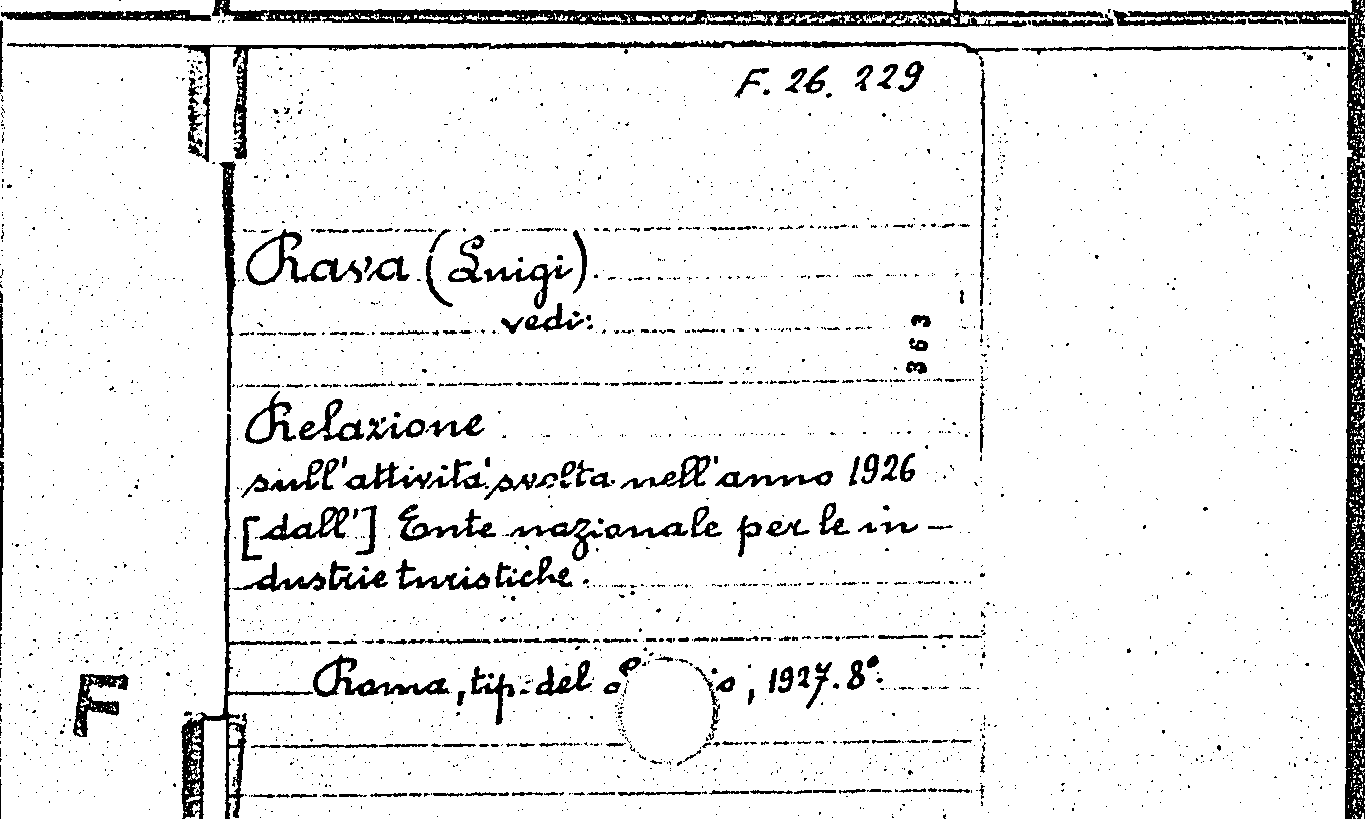 F. 26. 229
Rava (Luigi)
vedi:
363
Relazione
sull'attività svolta nell'anno 1926
[dall'] Ente nazionale per le in-
dustrie turistiche.
Roma, tip. del , 1927. 8°.
F